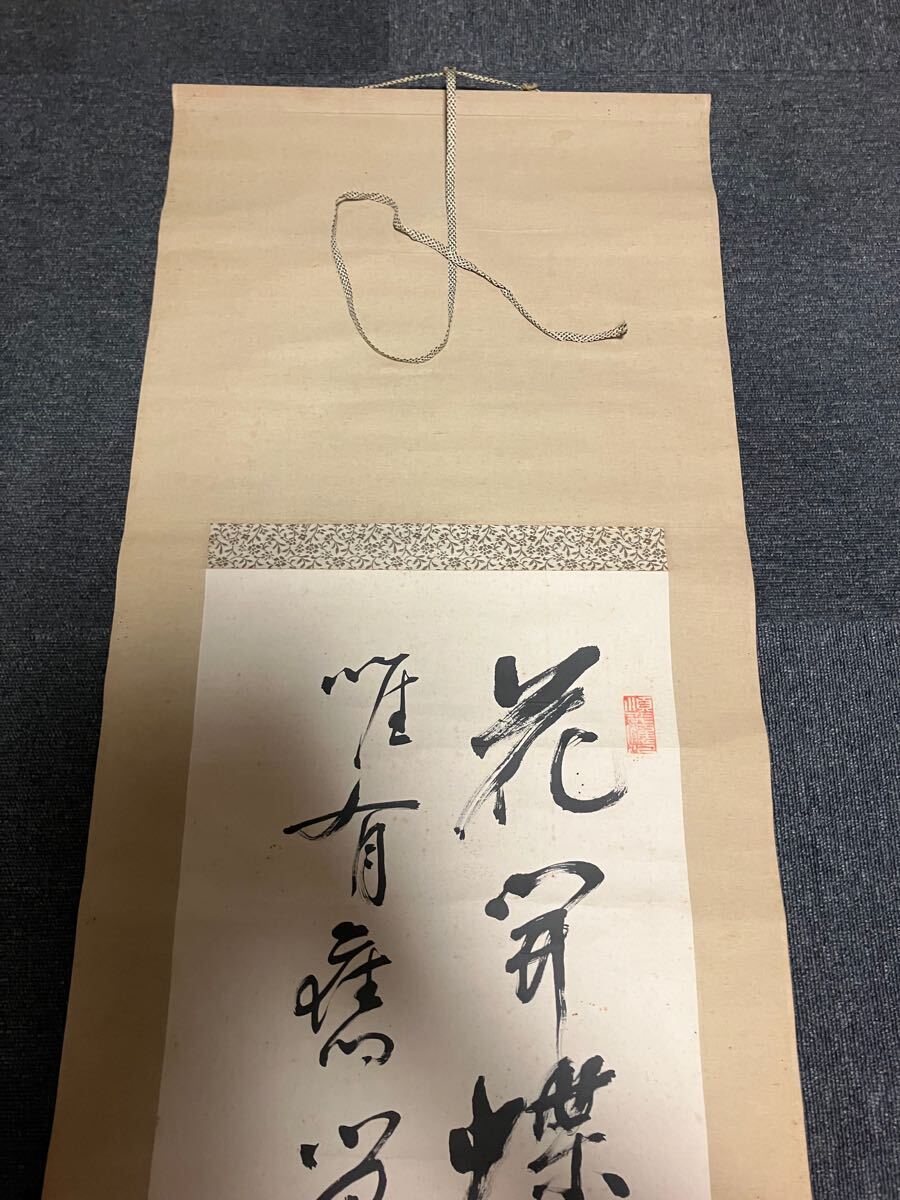 花開蝶
唯有舊